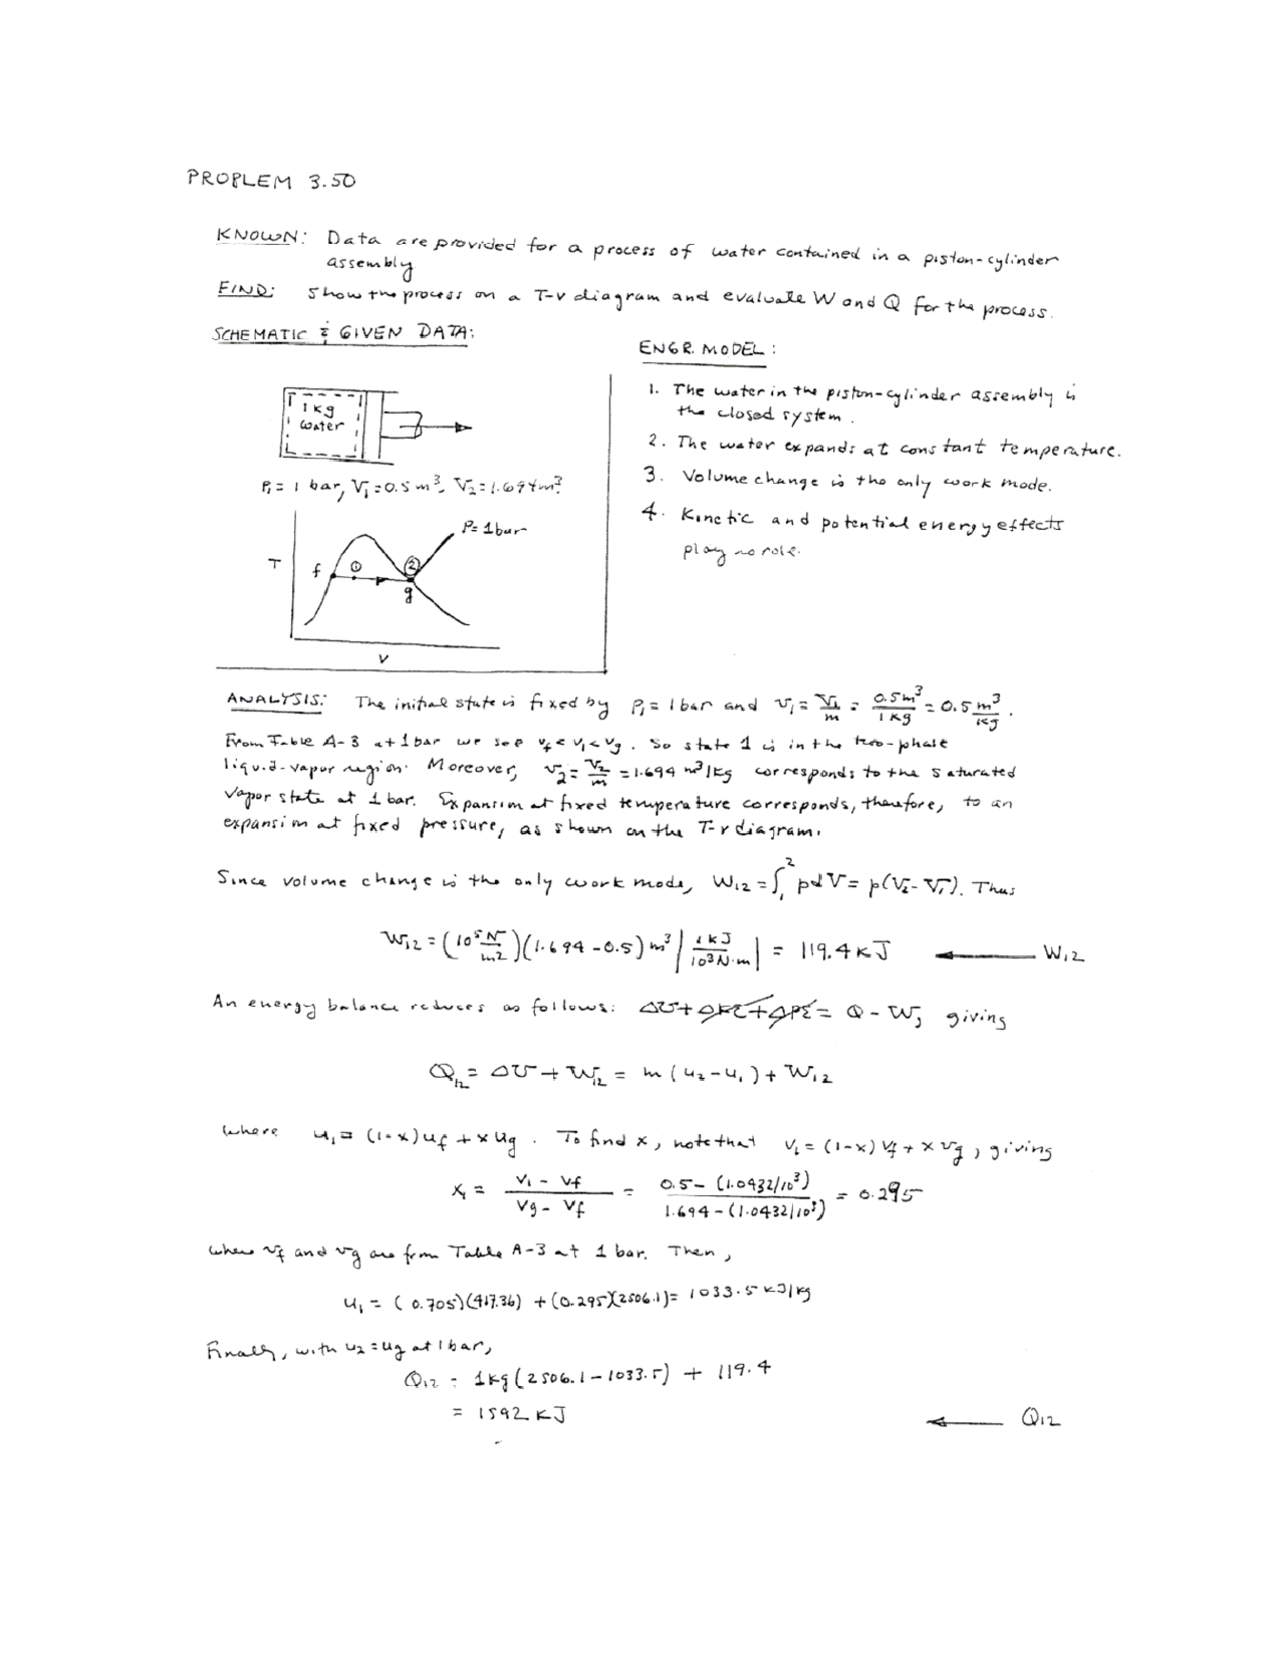 PROBLEM 3.50
KNOWN: Data are provided for a process of water contained in a piston-cylinder
assembly
FIND: Show the process on a T-v diagram and evaluate W and Q for the process.
SCHEMATIC & GIVEN DATA:
1 kg
water
P₁ = 1 bar, V₁ = 0.5 m³, V₂ = 1.694 m³
P = 1 bar
T
f
①
②
g
v
ENGR. MODEL:
1. The water in the piston-cylinder assembly is
the closed system.
2. The water expands at constant temperature.
3. Volume change is the only work mode.
4. Kinetic and potential energy effects
play no role.
ANALYSIS: The initial state is fixed by p₁ = 1 bar and v₁ = V₁/m = 0.5 m³/1 kg = 0.5 m³/kg.
From Table A-3 at 1 bar we see vf < v₁ < vg. So state 1 is in the two-phase
liquid-vapor region. Moreover, v₂ = V₂/m = 1.694 m³/kg corresponds to the saturated
vapor state at 1 bar. Expansion at fixed temperature corresponds, therefore, to an
expansion at fixed pressure, as shown on the T-v diagram.
Since volume change is the only work mode, W₁₂ = ∫₁² pdV = p(V₂ - V₁). Thus
W₁₂ = (10⁵ N/m²)(1.694 - 0.5) m³ | 1 kJ/10³ N·m | = 119.4 kJ ← W₁₂
An energy balance reduces as follows: ΔU + ΔKE + ΔPE = Q - W, giving
Q₁₂ = ΔU + W₁₂ = m(u₂ - u₁) + W₁₂
where u₁ = (1-x)uf + x ug. To find x, note that v₁ = (1-x)vf + x vg, giving
x₁ = (v₁ - vf)/(vg - vf) = (0.5 - (1.0432/10³))/(1.694 - (1.0432/10³)) = 0.295
where vf and vg are from Table A-3 at 1 bar. Then,
u₁ = (0.705)(417.36) + (0.295)(2506.1) = 1033.5 kJ/kg
Finally, with u₂ = ug at 1 bar,
Q₁₂ = 1 kg (2506.1 - 1033.5) + 119.4
= 1592 kJ ← Q₁₂